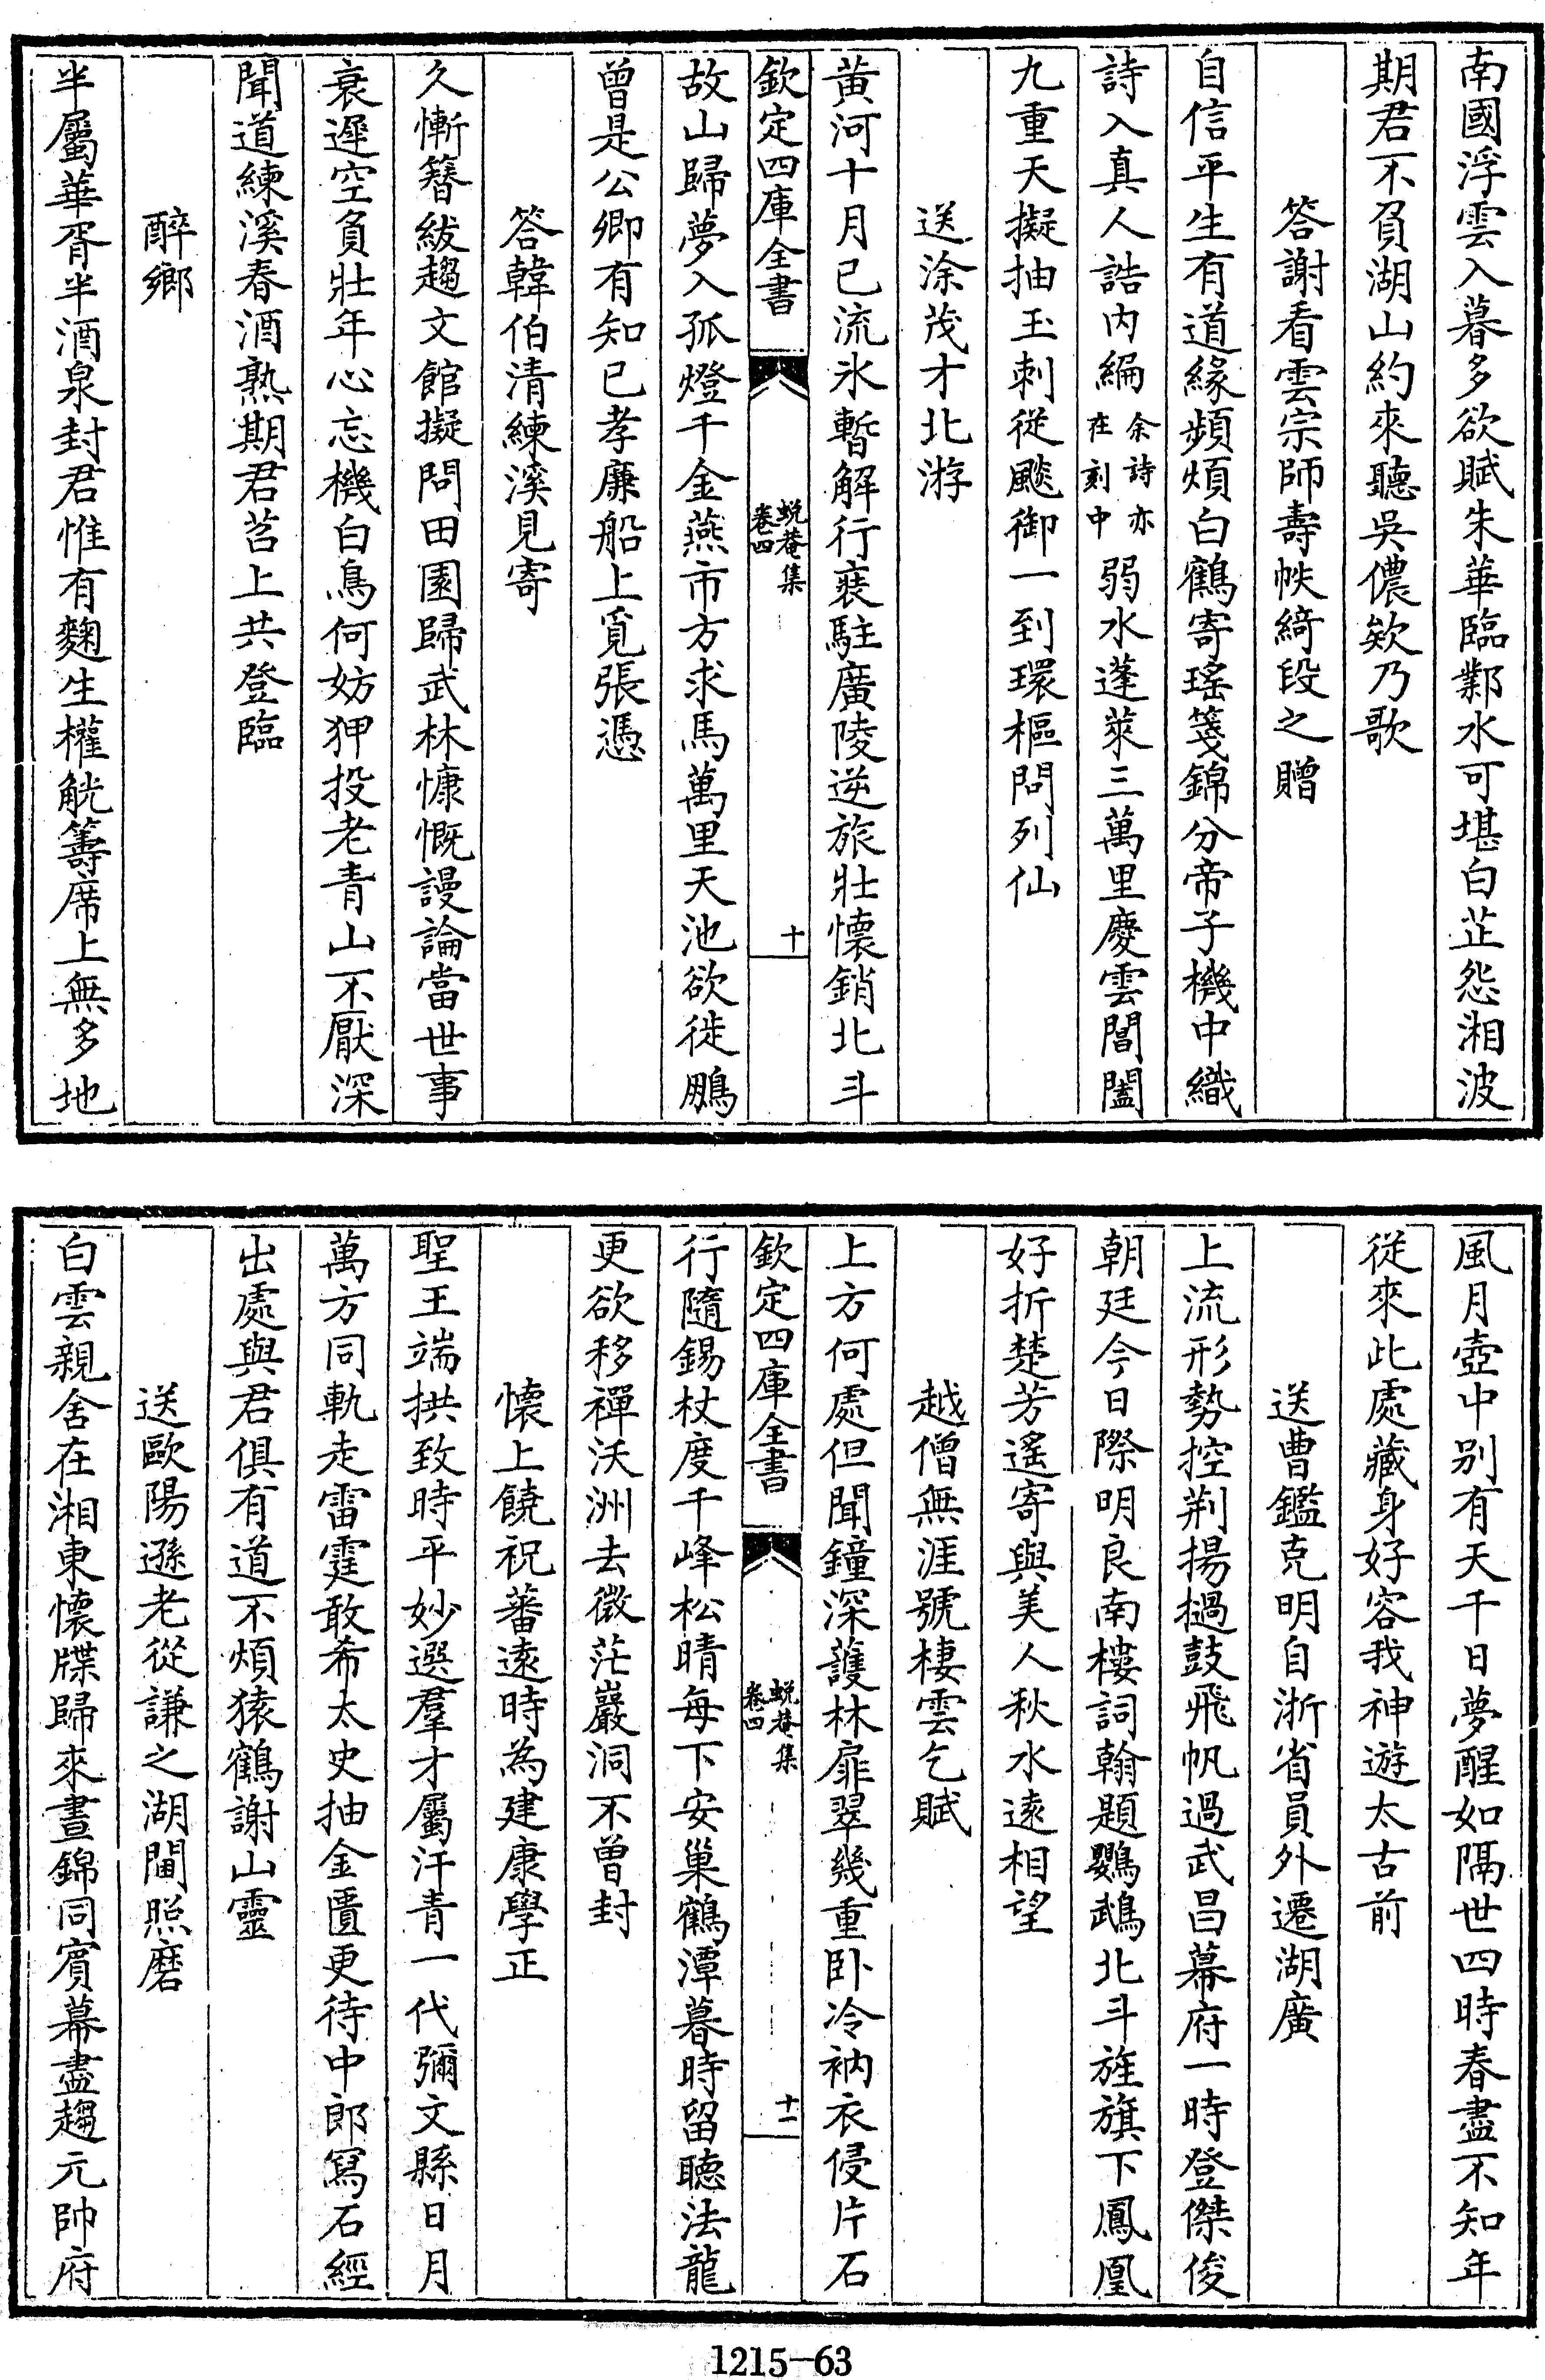 南國浮雲入暮多欲賦朱華臨鄴水可堪白芷怨湘波
期君不負湖山約來聽吳儂欸乃歌
答謝看雲宗師壽帙綺段之贈
自信平生有道緣頻煩白鶴寄瑤箋錦分帝子機中織
詩入真人誥內編余詩亦在刻中弱水蓬萊三萬里慶雲閶闔
九重天擬抽玉刺從飈御一到環樞問列仙
送涂茂才北游
黄河十月已流氷暫解行裝駐廣陵逆旅壯懷銷北斗
欽定四庫全書
蛻菴集
卷四
十
故山歸夢入孤燈千金燕市方求馬萬里天池欲徙鵬
曾是公卿有知已孝廉船上覓張憑
答韓伯清練溪見寄
久慚簪紱趨文館擬問田園歸武林慷慨謾論當世事
衰遲空負壯年心忘機白鳥何妨狎投老青山不厭深
聞道練溪春酒熟期君苕上共登臨
醉鄉
半屬華胥半酒泉封君惟有麴生權觥籌席上無多地
風月壺中别有天千日夢醒如隔世四時春盡不知年
從來此處藏身好容我神遊太古前
送曹鑑克明自浙省員外遷湖廣
上流形勢控荆揚撾鼓飛帆過武昌幕府一時登傑俊
朝廷今日際明良南樓詞翰題鸚鵡北斗旌旗下鳳凰
好折楚芳遙寄與美人秋水遠相望
越僧無涯號棲雲乞賦
上方何處但聞鐘深護林扉翠幾重卧冷衲衣侵片石
欽定四庫全書
蛻菴集
卷四
十一
行隨錫杖度千峰松晴每下安巢鶴潭暮時留聴法龍
更欲移禪沃洲去微茫巖洞不曾封
懷上饒祝蕃遠時為建康學正
聖王端拱致時平妙選羣才屬汗青一代彌文縣日月
萬方同軌走雷霆敢希太史抽金匱更待中郎寫石經
出處與君俱有道不煩猿鶴謝山靈
送歐陽遜老從謙之湖閫照磨
白雲親舍在湘東懷牒歸來晝錦同賓幕盡趨元帥府
1215—63